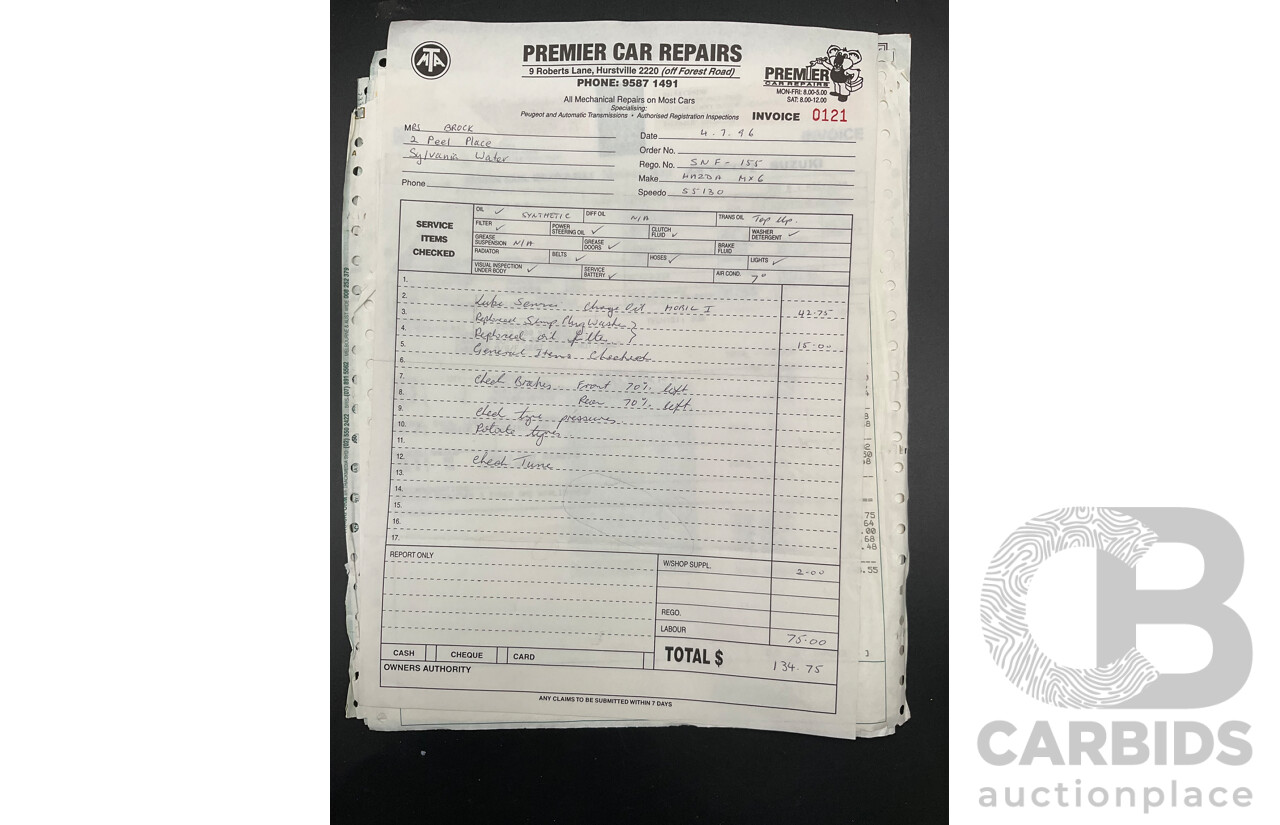 MTA
PREMIER CAR REPAIRS
9 Roberts Lane, Hurstville 2220 (off Forest Road)
PHONE: 9587 1491
All Mechanical Repairs on Most Cars
Specialising:
Peugeot and Automatic Transmissions • Authorised Registration Inspections
PREMIER
CAR REPAIRS
MON-FRI: 8.00-5.00
SAT: 8.00-12.00
INVOICE 0121
MRS BROCK
2 Peel Place
Sylvania Water
Phone
Date 4.7.96
Order No.
Rego. No. SNF-155
Make MAZDA MX6
Speedo 55130
SERVICE ITEMS CHECKED
OIL ✓ SYNTHETIC DIFF OIL N/A TRANS OIL Top Up.
FILTER ✓ POWER STEERING OIL ✓ CLUTCH FLUID ✓ WASHER DETERGENT ✓
GREASE SUSPENSION N/A GREASE DOORS ✓ BRAKE FLUID
RADIATOR BELTS ✓ HOSES ✓ LIGHTS ✓
VISUAL INSPECTION UNDER BODY ✓ SERVICE BATTERY ✓ AIR COND. 7°
1.
2. Lube Service Change Oil MOBIL I 42.75
3. Replaced Sump Plug Washer }
4. Replaced oil filter } 15.00
5. General Items Checked
6.
7. Check Brakes Front 70% left
8. Rear 70% left
9. Check tyre pressures
10. Rotate tyres
11.
12. Check Tune
13.
14.
15.
16.
17.
REPORT ONLY
W/SHOP SUPPL. 2.00
REGO.
LABOUR 75.00
TOTAL $ 134.75
CASH CHEQUE CARD
OWNERS AUTHORITY
ANY CLAIMS TO BE SUBMITTED WITHIN 7 DAYS
75
64
.00
.68
.48
.55
CB
CARBIDS
auctionplace